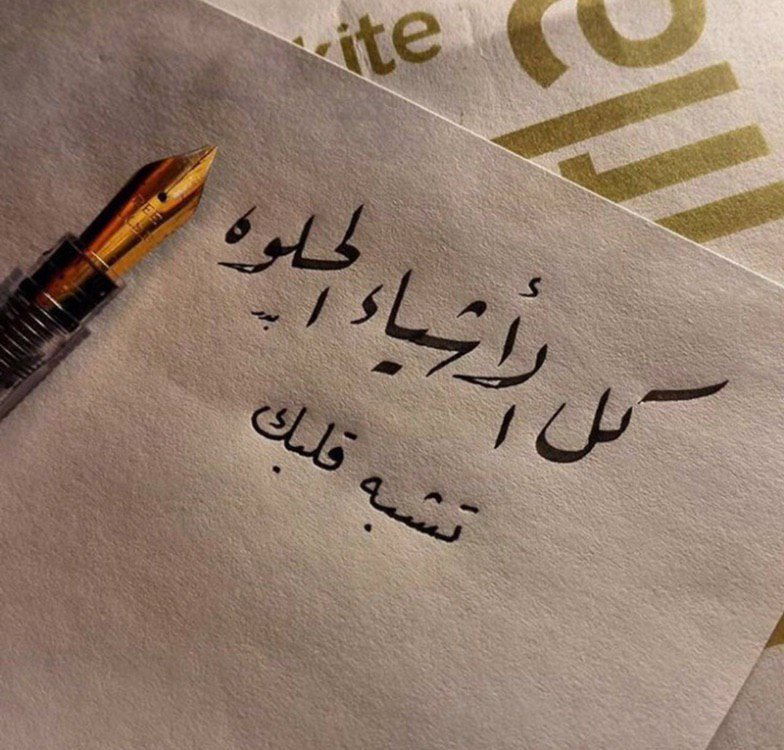 kite
كل الأشياء الحلوه
تشبه قلبك